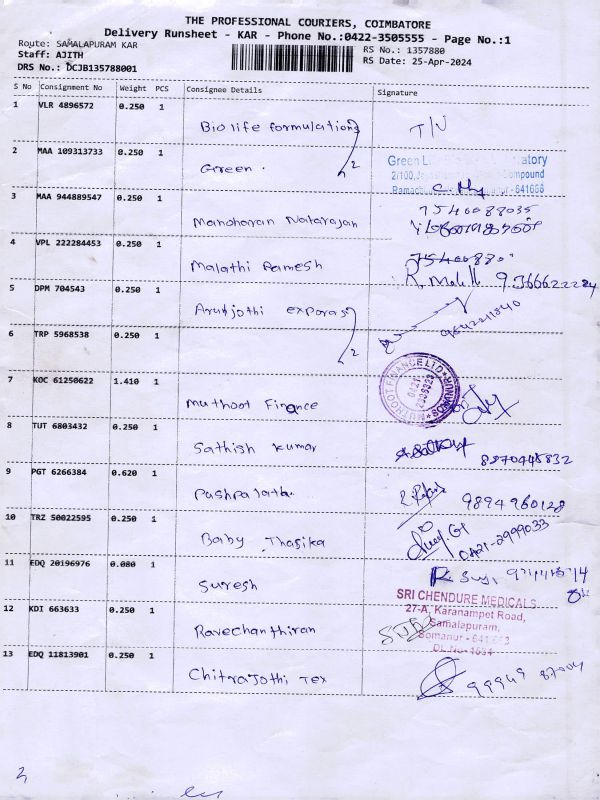 THE PROFESSIONAL COURIERS, COIMBATORE
Delivery Runsheet - KAR - Phone No.:0422-3505555 - Page No.:1
Route: SAMALAPURAM KAR
Staff: AJITH
DRS No.: DCJB135788001
RS No.: 1357880
RS Date: 25-Apr-2024
S No Consignment No Weight PCS Consignee Details Signature
1 VLR 4896572 0.250 1
Biolife formulations T/N
2 MAA 109313733 0.250 1
Green. 2
Green
2/100, Compound
641668
3 MAA 944889547 0.250 1
Manoharan Natarajan 7540088035
4 VPL 222284453 0.250 1
Malathi Ramesh
5 DPM 704543 0.250 1
Arudjothi exporas
6 TRP 5968538 0.250 1
2
7 KOC 61250622 1.410 1
Muthoot Finance
MUTHOOT FINANCE LTD
8 TUT 6803432 0.250 1
Sathish kumar
9 PGT 6266384 0.620 1
Pushpalatha 9894960128
10 TRZ 50022595 0.250 1
Baby Thasika 0421-2999033
11 EDQ 20196976 0.080 1
Suresh
SRI CHENDURE MEDICALS
27-A, Karanampet Road,
Samalapuram,
Somanur - 641 663
12 KDI 663633 0.250 1
Ravechanthiran
13 EDQ 11813901 0.250 1
Chitrajothi Tex 99949 87004